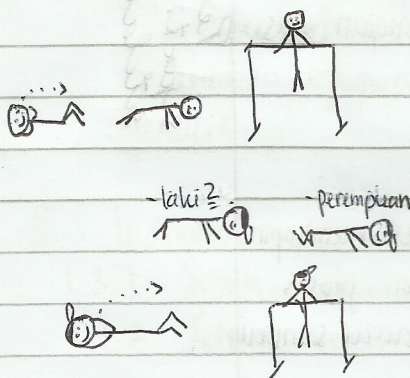 -laki2 -perempuan